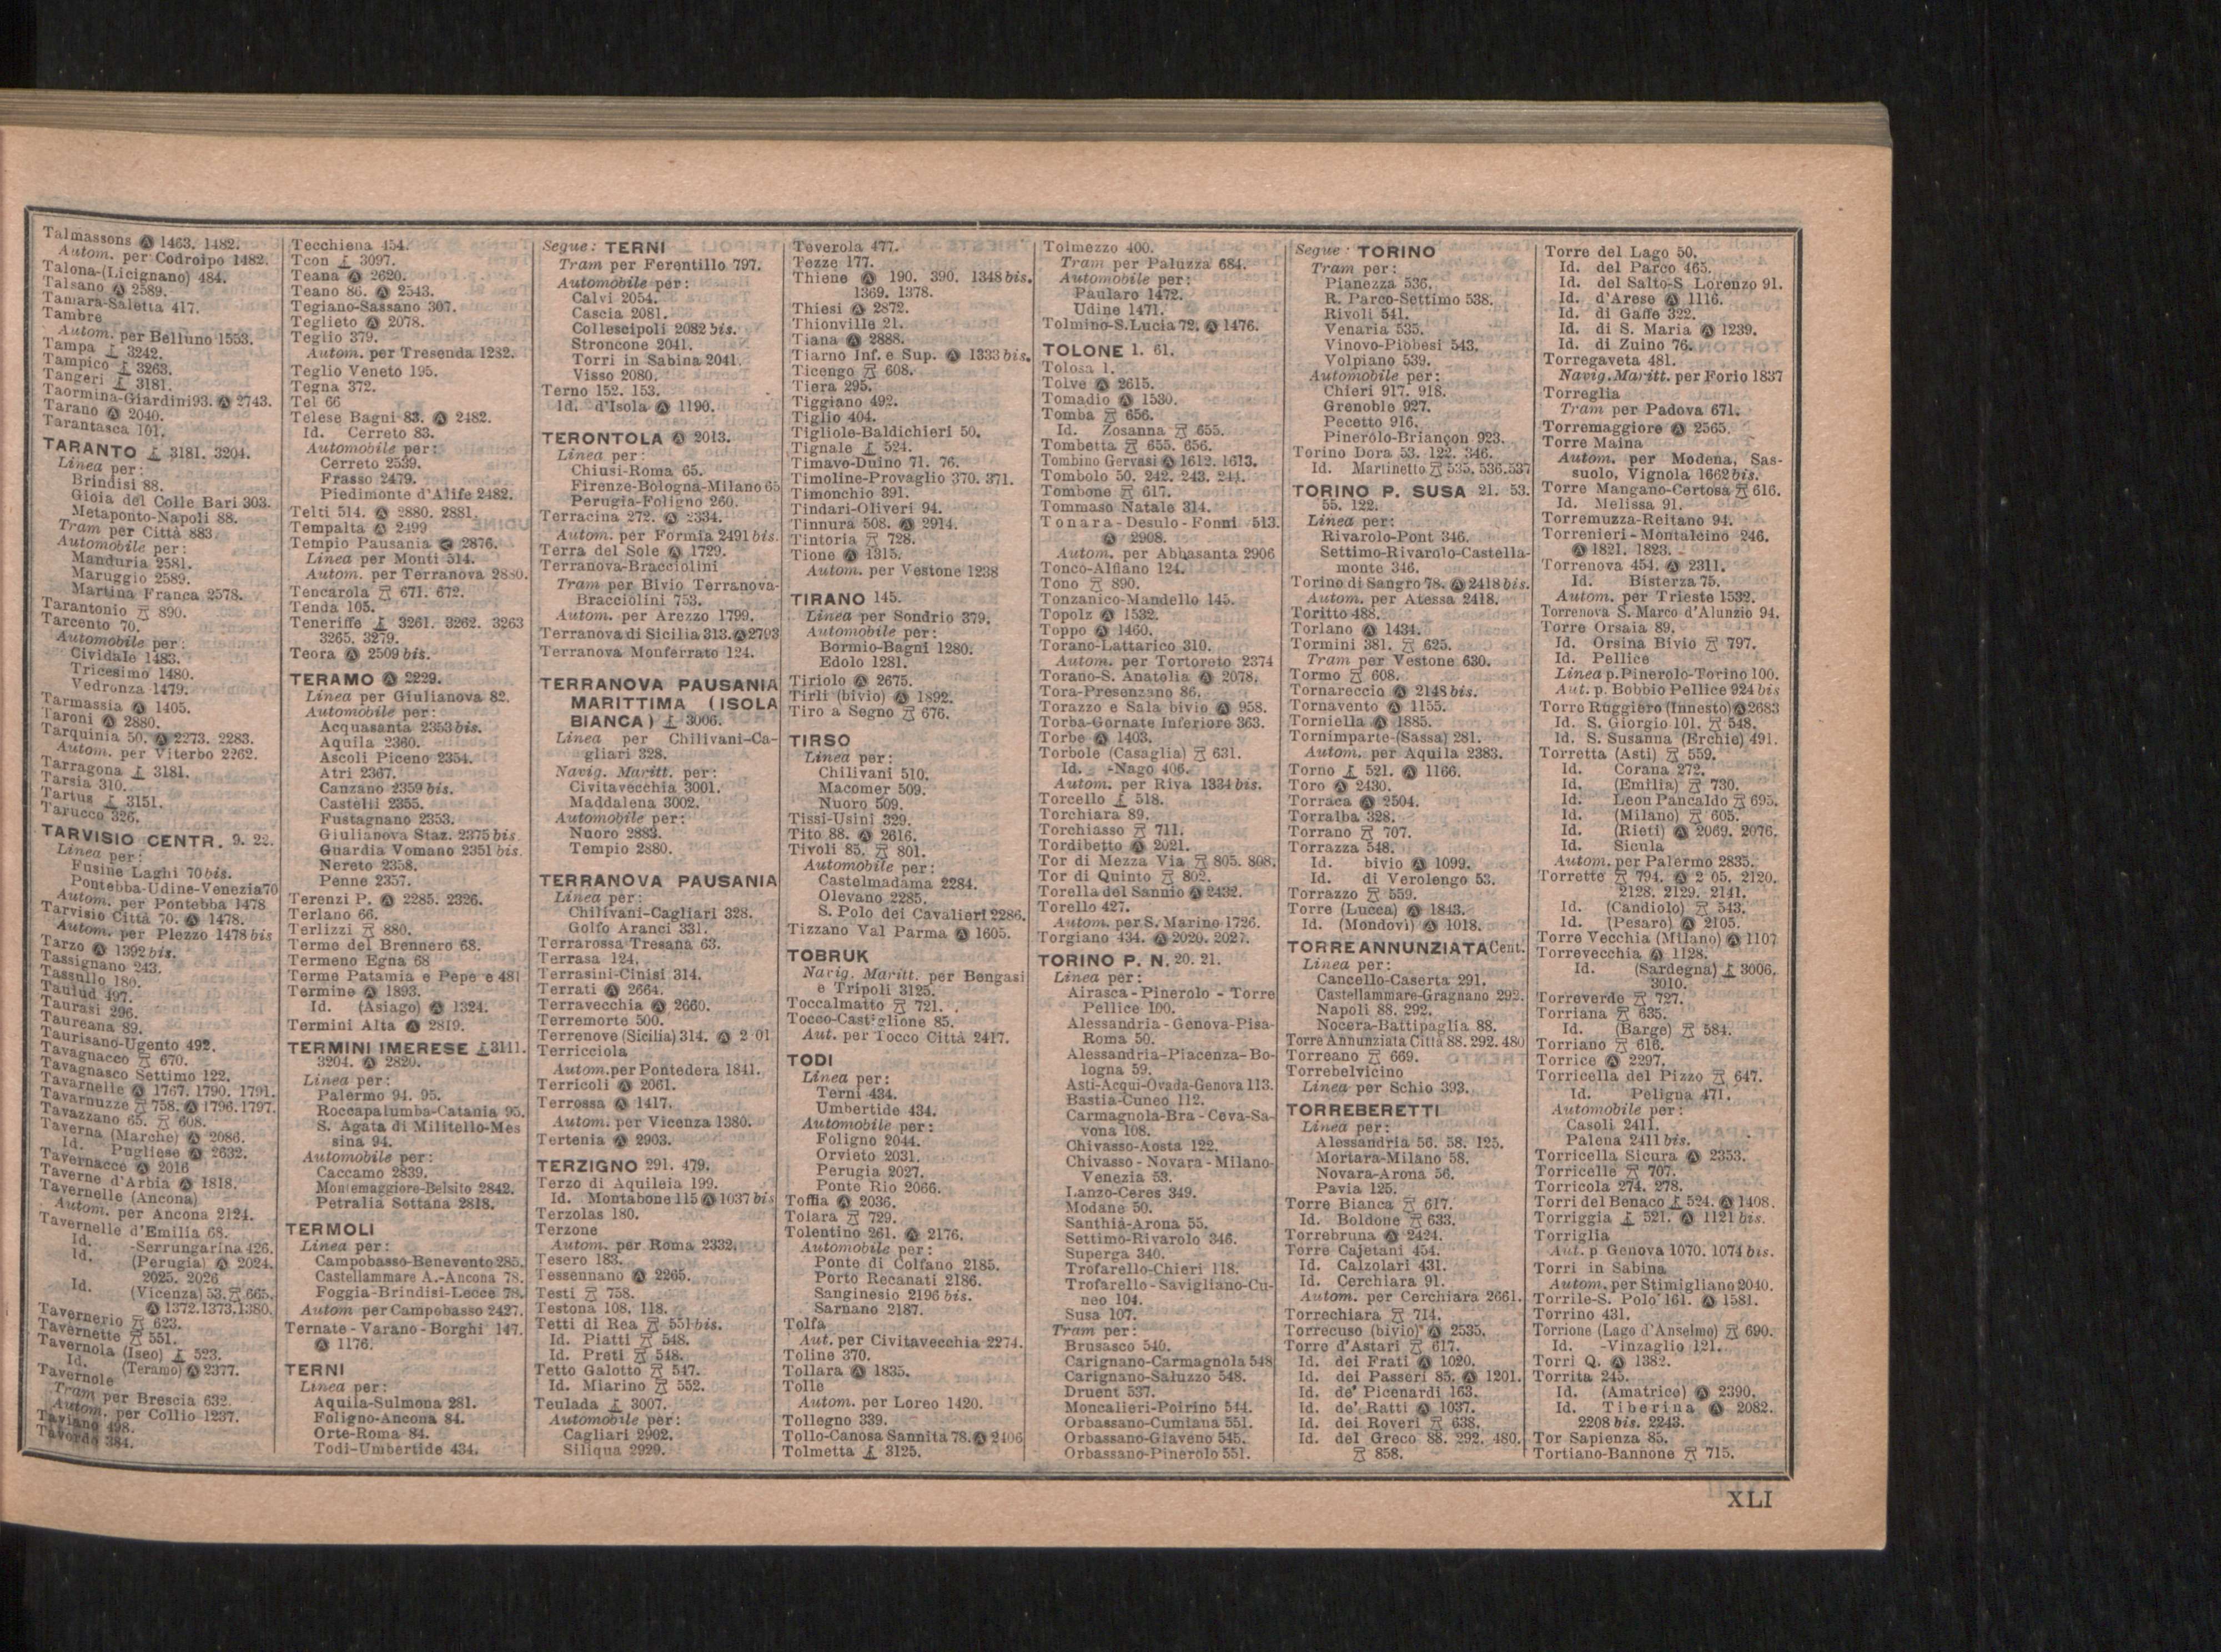 Talmassons Ⓐ 1463. 1482.
Autom. per Codroipo 1482.
Talona-(Licignano) 484.
Talsano Ⓐ 2589.
Tamara-Saletta 417.
Tambre
Autom. per Belluno 1553.
Tampa ⚓ 3242.
Tampico ⚓ 3263.
Tangeri ⚓ 3181.
Taormina-Giardini 93. Ⓐ 2743.
Tarano Ⓐ 2040.
Tarantasca 101.
TARANTO ⚓ 3181. 3204.
Linea per:
Brindisi 88.
Gioia del Colle Bari 303.
Metaponto-Napoli 88.
Tram per Città 883
Automobile per:
Manduria 2581.
Maruggio 2589.
Martina Franca 2578.
Tarantonio 890.
Tarcento 70.
Automobile per:
Cividale 1483.
Tricesimo 1480.
Vedronza 1479.
Tarmassia Ⓐ 1405.
Taroni Ⓐ 2880.
Tarquinia 50. Ⓐ 2273. 2283.
Autom. per Viterbo 2262.
Tarragona ⚓ 3181.
Tarsia 310.
Tartus ⚓ 3151.
Tarucco 326.
TARVISIO CENTR. 9. 22.
Linea per:
Fusine Laghi 70 bis.
Pontebba-Udine-Venezia 70
Autom. per Pontebba 1478
Tarvisio Città 70. Ⓐ 1478.
Autom. per Plezzo 1478 bis
Tarzo Ⓐ 1392 bis.
Tassignano 243.
Tassullo 180.
Taulud 497.
Taurasi 296.
Taureana 89.
Taurisano-Ugento 492.
Tavagnacco 670.
Tavagnasco Settimo 122.
Tavarnelle Ⓐ 1767. 1790. 1791.
Tavarnuzze 758. Ⓐ 1796. 1797.
Tavazzano 65. 608.
Taverna (Marche) Ⓐ 2086.
Id. Pugliese Ⓐ 2632.
Tavernacce Ⓐ 2016
Taverne d'Arbia Ⓐ 1818.
Tavernelle (Ancona)
Autom. per Ancona 2124.
Tavernelle d'Emilia 68.
Id. -Serrungarina 426.
Id. (Perugia) Ⓐ 2024.
2025. 2026
Id. (Vicenza) 53. 665.
Ⓐ 1372. 1373. 1380.
Tavernerio 623.
Tavernette 551.
Tavernola (Iseo) ⚓ 523.
Id. (Teramo) Ⓐ 2377.
Tavernole
Tram per Brescia 632.
Autom. per Collio 1237.
Taviano 498.
Tavordo 384.
Tecchiena 454.
Tcon ⚓ 3097.
Teana Ⓐ 2620.
Teano 86. Ⓐ 2543.
Tegiano-Sassano 307.
Teglieto Ⓐ 2078.
Teglio 379.
Autom. per Tresenda 1282.
Teglio Veneto 195.
Tegna 372.
Tel 66
Telese Bagni 83. Ⓐ 2482.
Id. Cerreto 83.
Automobile per:
Cerreto 2539.
Frasso 2479.
Piedimonte d'Alife 2482.
Telti 514. Ⓐ 2880. 2881.
Tempalta Ⓐ 2499
Tempio Pausania Ⓐ 2876.
Linea per Monti 514.
Autom. per Terranova 2880.
Tencarola 671. 672.
Tenda 105.
Teneriffe ⚓ 3261. 3262. 3263
3265. 3279.
Teora Ⓐ 2509 bis.
TERAMO Ⓐ 2229.
Linea per Giulianova 82.
Automobile per:
Acquasanta 2353 bis.
Aquila 2360.
Ascoli Piceno 2354.
Atri 2367.
Canzano 2359 bis.
Castelli 2355.
Fustagnano 2353.
Giulianova Staz. 2375 bis
Guardia Vomano 2351 bis.
Nereto 2358.
Penne 2357.
Terenzi P. Ⓐ 2285. 2326.
Terlano 66.
Terlizzi 880.
Terme del Brennero 68.
Termeno Egna 68
Terme Patamia e Pepe e 481
Termine Ⓐ 1893.
Id. (Asiago) Ⓐ 1324.
Termini Alta Ⓐ 2819.
TERMINI IMERESE ⚓ 3111.
3204. Ⓐ 2820.
Linea per:
Palermo 94. 95.
Roccapalumba-Catania 95.
S. Agata di Militello-Mes
sina 94.
Automobile per:
Caccamo 2839.
Montemaggiore-Belsito 2842.
Petralia Sottana 2818.
TERMOLI
Linea per:
Campobasso-Benevento 285.
Castellammare A.-Ancona 78.
Foggia-Brindisi-Lecce 78.
Autom per Campobasso 2427.
Ternate - Varano - Borghi 147.
Ⓐ 1176.
TERNI
Linea per:
Aquila-Sulmona 281.
Foligno-Ancona 84.
Orte-Roma 84.
Todi-Umbertide 434.
Segue: TERNI
Tram per Ferentillo 797.
Automobile per:
Calvi 2054.
Cascia 2081.
Collescipoli 2082 bis.
Stroncone 2041.
Torri in Sabina 2041.
Visso 2080.
Terno 152. 153.
Id. d'Isola Ⓐ 1190.
TERONTOLA Ⓐ 2013.
Linea per:
Chiusi-Roma 65.
Firenze-Bologna-Milano 65
Perugia-Foligno 260.
Terracina 272. Ⓐ 2334.
Autom. per Formia 2491 bis.
Terra del Sole Ⓐ 1729.
Terranova-Bracciolini
Tram per Bivio Terranova-
Bracciolini 753.
Autom. per Arezzo 1799.
Terranova di Sicilia 313. Ⓐ 2793
Terranova Monferrato 124.
TERRANOVA PAUSANIA
MARITTIMA (ISOLA
BIANCA) ⚓ 3006.
Linea per Chilivani-Ca-
gliari 328.
Navig. Maritt. per:
Civitavecchia 3001.
Maddalena 3002.
Automobile per:
Nuoro 2883.
Tempio 2880.
TERRANOVA PAUSANIA
Linea per:
Chilivani-Cagliari 328.
Golfo Aranci 331.
Terrarossa Tresana 63.
Terrasa 124.
Terrasini-Cinisi 314.
Terrati Ⓐ 2664.
Terravecchia Ⓐ 2660.
Terremorte 500.
Terrenove (Sicilia) 314. Ⓐ 2 01
Terricciola
Autom. per Pontedera 1841.
Terricoli Ⓐ 2061.
Terrossa Ⓐ 1417.
Autom. per Vicenza 1380.
Tertenia Ⓐ 2903.
TERZIGNO 291. 479.
Terzo di Aquileia 199.
Id. Montabone 115 Ⓐ 1037 bis
Terzolas 180.
Terzone
Autom. per Roma 2332.
Tesero 183.
Tessennano Ⓐ 2265.
Testi 758.
Testona 108. 118.
Tetti di Rea 551 bis.
Id. Piatti 548.
Id. Preti 548.
Tetto Galotto 547.
Id. Miarino 552.
Teulada ⚓ 3007.
Automobile per:
Cagliari 2902.
Siliqua 2929.
Teverola 477.
Tezze 177.
Thiene Ⓐ 190. 390. 1348 bis.
1369. 1378.
Thiesi Ⓐ 2872.
Thionville 21.
Tiana Ⓐ 2888.
Tiarno Inf. e Sup. Ⓐ 1333 bis.
Ticengo 608.
Tiera 295.
Tiggiano 492.
Tiglio 404.
Tigliole-Baldichieri 50.
Tignale ⚓ 524.
Timavo-Duino 71. 76.
Timoline-Provaglio 370. 371.
Timonchio 391.
Tindari-Oliveri 94.
Tinnura 508. Ⓐ 2914.
Tintoria 728.
Tione Ⓐ 1315.
Autom. per Vestone 1238
TIRANO 145.
Linea per Sondrio 379.
Automobile per:
Bormio-Bagni 1280.
Edolo 1281.
Tiriolo Ⓐ 2675.
Tirli (bivio) Ⓐ 1892.
Tiro a Segno 676.
TIRSO
Linea per:
Chilivani 510.
Macomer 509.
Nuoro 509.
Tissi-Usini 329.
Tito 88. Ⓐ 2616.
Tivoli 85. 801.
Automobile per:
Castelmadama 2284.
Olevano 2285.
S. Polo dei Cavalieri 2286.
Tizzano Val Parma Ⓐ 1605.
TOBRUK
Navig. Maritt. per Bengasi
e Tripoli 3125.
Toccalmatto 721.
Tocco-Castiglione 85.
Aut. per Tocco Città 2417.
TODI
Linea per:
Terni 434.
Umbertide 434.
Automobile per:
Foligno 2044.
Orvieto 2031.
Perugia 2027.
Ponte Rio 2066.
Toffia Ⓐ 2036.
Tolara 729.
Tolentino 261. Ⓐ 2176.
Automobile per:
Ponte di Colfano 2185.
Porto Recanati 2186.
Sanginesio 2196 bis.
Sarnano 2187.
Tolfa
Aut. per Civitavecchia 2274.
Toline 370.
Tollara Ⓐ 1835.
Tolle
Autom. per Loreo 1420.
Tollegno 339.
Tollo-Canosa Sannita 78. Ⓐ 2406
Tolmetta ⚓ 3125.
Tolmezzo 400.
Tram per Paluzza 684.
Automobile per:
Paularo 1472.
Udine 1471.
Tolmino-S.Lucia 72. Ⓐ 1476.
TOLONE 1. 61.
Tolosa 1.
Tolve Ⓐ 2615.
Tomadio Ⓐ 1530.
Tomba 656.
Id. Zosanna 655.
Tombetta 655. 656.
Tombino Gervasi Ⓐ 1612. 1613.
Tombolo 50. 242. 243. 244.
Tombone 617.
Tommaso Natale 314.
Tonara - Desulo - Fonni 513.
Ⓐ 2908.
Autom. per Abbasanta 2906
Tonco-Alfiano 124.
Tono 890.
Tonzanico-Mandello 145.
Topolz Ⓐ 1532.
Toppo Ⓐ 1460.
Torano-Lattarico 310.
Autom. per Tortoreto 2374
Torano-S. Anatolia Ⓐ 2078.
Tora-Presenzano 86.
Torazzo e Sala bivio Ⓐ 958.
Torba-Gornate Inferiore 363.
Torbe Ⓐ 1403.
Torbole (Casaglia) 631.
Id. -Nago 406.
Autom. per Riva 1334 bis.
Torcello ⚓ 518.
Torchiara 89.
Torchiasso 711.
Tordibetto Ⓐ 2021.
Tor di Mezza Via 805. 808.
Tor di Quinto 802.
Torella del Sannio Ⓐ 2432.
Torello 427.
Autom. per S. Marino 1726.
Torgiano 434. Ⓐ 2020. 2027.
TORINO P. N. 20. 21.
Linea per:
Airasca - Pinerolo - Torre
Pellice 100.
Alessandria - Genova-Pisa-
Roma 50.
Alessandria-Piacenza-Bo-
logna 59.
Asti-Acqui-Ovada-Genova 113.
Bastia-Cuneo 112.
Carmagnola-Bra - Ceva-Sa-
vona 108.
Chivasso-Aosta 122.
Chivasso - Novara - Milano-
Venezia 53.
Lanzo-Ceres 349.
Modane 50.
Santhià-Arona 55.
Settimo-Rivarolo 346.
Superga 340.
Trofarello-Chieri 118.
Trofarello - Savigliano-Cu-
neo 104.
Susa 107.
Tram per:
Brusasco 540.
Carignano-Carmagnola 548
Carignano-Saluzzo 548.
Druent 537.
Moncalieri-Poirino 544.
Orbassano-Cumiana 551.
Orbassano-Giaveno 545.
Orbassano-Pinerolo 551.
Segue: TORINO
Tram per:
Pianezza 536.
R. Parco-Settimo 538.
Rivoli 541.
Venaria 535.
Vinovo-Piobesi 543.
Volpiano 539.
Automobile per:
Chieri 917. 918.
Grenoble 927.
Pecetto 916.
Pinerolo-Briançon 923.
Torino Dora 53. 122. 346.
Id. Martinetto 535. 536. 537
TORINO P. SUSA 21. 53.
55. 122.
Linea per:
Rivarolo-Pont 346.
Settimo-Rivarolo-Castella-
monte 346.
Torino di Sangro 78. Ⓐ 2418 bis.
Autom. per Atessa 2418.
Toritto 488.
Torlano Ⓐ 1434.
Tormini 381. 625.
Tram per Vestone 630.
Tormo 608.
Tornareccio Ⓐ 2148 bis.
Tornavento Ⓐ 1155.
Torniella Ⓐ 1885.
Tornimparte-(Sassa) 281.
Autom. per Aquila 2383.
Torno ⚓ 521. Ⓐ 1166.
Toro Ⓐ 2430.
Torraca Ⓐ 2504.
Torralba 328.
Torrano 707.
Torrazza 548.
Id. bivio Ⓐ 1099.
Id. di Verolengo 53.
Torrazzo 559.
Torre (Lucca) Ⓐ 1843.
Id. (Mondovì) Ⓐ 1018.
TORRE ANNUNZIATA Cent.
Linea per:
Cancello-Caserta 291.
Castellammare-Gragnano 292.
Napoli 88. 292.
Nocera-Battipaglia 88.
Torre Annunziata Città 88. 292. 480
Torreano 669.
Torrebelvicino
Linea per Schio 393.
TORREBERETTI
Linea per:
Alessandria 56. 58. 125.
Mortara-Milano 58.
Novara-Arona 56.
Pavia 125.
Torre Bianca 617.
Id. Boldone 633.
Torrebruna Ⓐ 2424.
Torre Cajetani 454.
Id. Calzolari 431.
Id. Cerchiara 91.
Autom. per Cerchiara 2661.
Torrechiara 714.
Torrecuso (bivio) Ⓐ 2535.
Torre d'Astari 617.
Id. dei Frati Ⓐ 1020.
Id. dei Passeri 85. Ⓐ 1201.
Id. de' Picenardi 163.
Id. de' Ratti Ⓐ 1037.
Id. dei Roveri 638.
Id. del Greco 88. 292. 480.
858.
Torre del Lago 50.
Id. del Parco 465.
Id. del Salto-S Lorenzo 91.
Id. d'Arese Ⓐ 1116.
Id. di Gaffe 322.
Id. di S. Maria Ⓐ 1239.
Id. di Zuino 76.
Torregaveta 481.
Navig.Maritt. per Forio 1837
Torreglia
Tram per Padova 671.
Torremaggiore Ⓐ 2565.
Torre Maina
Autom. per Modena, Sas-
suolo, Vignola 1662 bis.
Torre Mangano-Certosa 616.
Id. Melissa 91.
Torremuzza-Reitano 94.
Torrenieri - Montalcino 246.
Ⓐ 1821. 1823.
Torrenova 454. Ⓐ 2311.
Id. Bisterza 75.
Autom. per Trieste 1532.
Torrenova S. Marco d'Alunzio 94.
Torre Orsaia 89.
Id. Orsina Bivio 797.
Id. Pellice
Linea p. Pinerolo-Torino 100.
Aut. p. Bobbio Pellice 924 bis
Torre Ruggiero (Innesto) Ⓐ 2683
Id. S. Giorgio 101. 548.
Id. S. Susanna (Erchie) 491.
Torretta (Asti) 559.
Id. Corana 272.
Id. (Emilia) 730.
Id. Leon Pancaldo 695.
Id. (Milano) 605.
Id. (Rieti) Ⓐ 2069. 2076.
Id. Sicula
Autom. per Palermo 2835.
Torrette 794. Ⓐ 2 05. 2120.
2128. 2129. 2141.
Id. (Candiolo) 543.
Id. (Pesaro) Ⓐ 2105.
Torre Vecchia (Milano) Ⓐ 1107
Torrevecchia Ⓐ 1128.
Id. (Sardegna) ⚓ 3006.
3010.
Torreverde 727.
Torriana 635.
Id. (Barge) 584.
Torriano 616.
Torrice Ⓐ 2297.
Torricella del Pizzo 647.
Id. Peligna 471.
Automobile per:
Casoli 2411.
Palena 2411 bis.
Torricella Sicura Ⓐ 2353.
Torricelle 707.
Torricola 274. 278.
Torri del Benaco ⚓ 524. Ⓐ 1408.
Torriggia ⚓ 521. Ⓐ 1121 bis.
Torriglia
Aut. p. Genova 1070. 1074 bis.
Torri in Sabina
Autom. per Stimigliano 2040.
Torrile-S. Polo 161. Ⓐ 1581.
Torrino 431.
Torrione (Lago d'Anselmo) 690.
Id. -Vinzaglio 121.
Torri Q. Ⓐ 1382.
Torrita 245.
Id. (Amatrice) Ⓐ 2390.
Id. Tiberina Ⓐ 2082.
2208 bis. 2243.
Tor Sapienza 85.
Tortiano-Bannone 715.
XLI